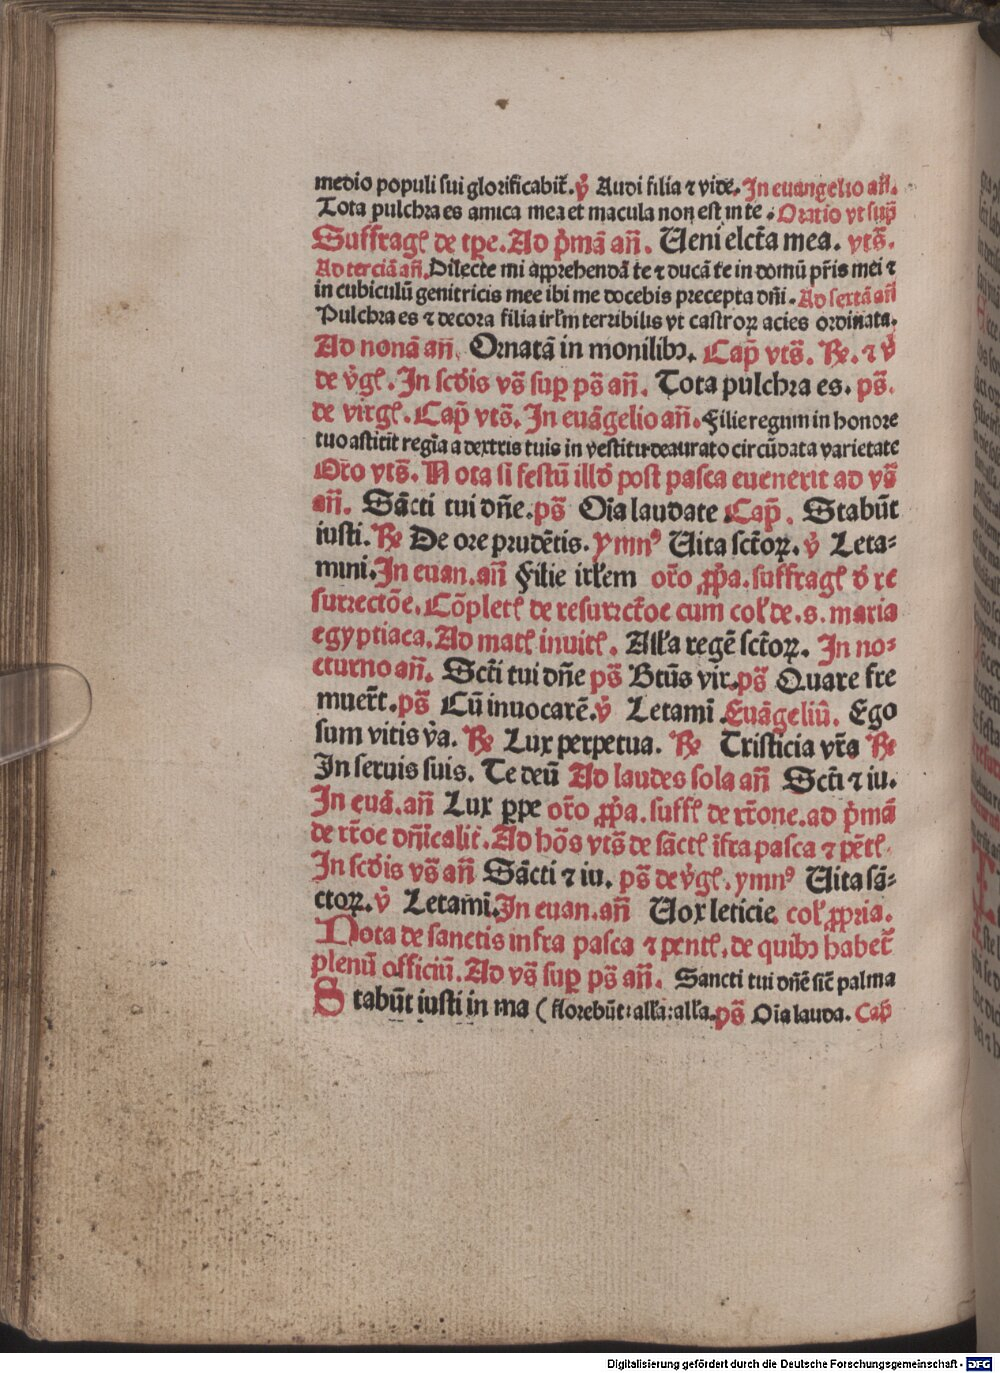 medio populi sui glorificabit̄. v̓ Audi filia ⁊ vide. In euangelio an̄.
Tota pulchra es amica mea et macula non est in te. Oratio vt sup̄
Suffrag̃ de tp̄e. Ad p̓mā an̄. Ueni elc̄ta mea. vts̄.
Ad terciā an̄. Dilecte mi apprehendā te ⁊ ducā te in domū pr̄is mei ⁊
in cubiculū genitricis mee ibi me docebis precepta dn̄i. Ad sextā an̄
Pulchra es ⁊ decora filia irl̄m terribilis vt castroꝝ acies ordinata.
Ad nonā an̄. Ornatā in monilibꝰ. Cap̄ vts̄. ℞. ⁊ v̓
de v̓gl̄. In scd̓is vs̄ sup ps̄ an̄. Tota pulchra es. ps̄.
de virgl̄. Cap̄ vts̄. In euāgelio an̄. Filie regum in honore
tuo astitit regīa a dextris tuis in vestitu deaurato circūdata varietate
Or̄o vts̄. Nota si festū illd̓ post pasca euenerit ad vs̄
an̄. Sācti tui dn̄e. ps̄ Oīa laudate Cap̄. Stabūt
iusti. ℞ De ore prudētis. ymnꝰ Uita sct̄oꝝ. v̓ Leta⸗
mini. In euan. an̄ Filie irl̄em or̄o ꝓp̄a. suffragl̄ d̓ re
surrectōe. Cōpletl̄ de resurrect̄oe cum col̄ de. s. maria
egyptiaca. Ad matl̄ inuitl̄. All̄a regē sct̄oꝝ. In no⸗
cturno an̄. Sct̄i tui dn̄e ps̄ Btūs vir. ps̄ Quare fre
muer̄t. ps̄ Cū inuocarē. v̓ Letami Euāgeliū. Ego
sum vitis v̓a. ℞ Lux perpetua. ℞ Tristicia vr̄a ℞
In seruis suis. Te deū Ad laudes sola an̄ Sct̄i ⁊ iu.
In euā. an̄ Lux ppe or̄o ꝓp̄a. suffl̄ de rr̄one. ad p̓mā
de rr̄oe dn̄icalit̓. Ad hōs vts̄ de sāctl̄ īfra pasca ⁊ pētl̄.
In scd̓is vs̄ an̄ Sācti ⁊ iu. ps̄ de v̓gl̄. ymnꝰ Uita sā⸗
ctoꝝ. v̓ Letami. In euan. an̄ Uox leticie col̄ ꝓpria.
Nota de sanctis infra pasca ⁊ pentl̄. de quibꝰ habet̄
plenū officiū. Ad vs̄ sup ps̄ an̄. Sancti tui dn̄e sic̄ palma
Stabūt iusti in ma ( florebūt: all̄a: all̄a. ps̄ Oīa lauda. Cap̄
Digitalisierung gefördert durch die Deutsche Forschungsgemeinschaft - DFG